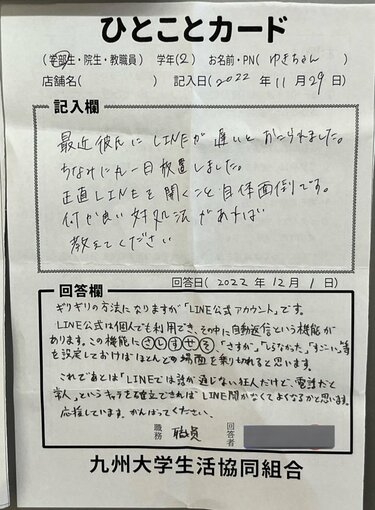 ひとことカード
(学部生・院生・教職員) 学年(2) お名前・PN(ゆきちゃん)
店舗名( ) 記入日(2022年11月29日)
記入欄
最近彼氏にLINEが遅いとおこられました。
ちなみに丸一日放置しました。
正直LINEを開くこと自体面倒です。
何か良い対処法があれば
教えてください
回答日(2022年12月1日)
回答欄
ギリギリの方法になりますが「LINE公式アカウント」です。
LINE公式は個人でも利用でき、その中に自動返信という機能が
あります。この機能にさしすせそ「さすが」「しらなかった」「すごい」等
を設定しておけばほとんどの場面を乗りきれると思います。
これであとは「LINEでは話が通じない狂人だけど、電話だと
学人」というキャラを確立できればLINE開かなくてよくなるかと思います。
応援しています。がんばってください。
職務 職員 回答者
九州大学生活協同組合